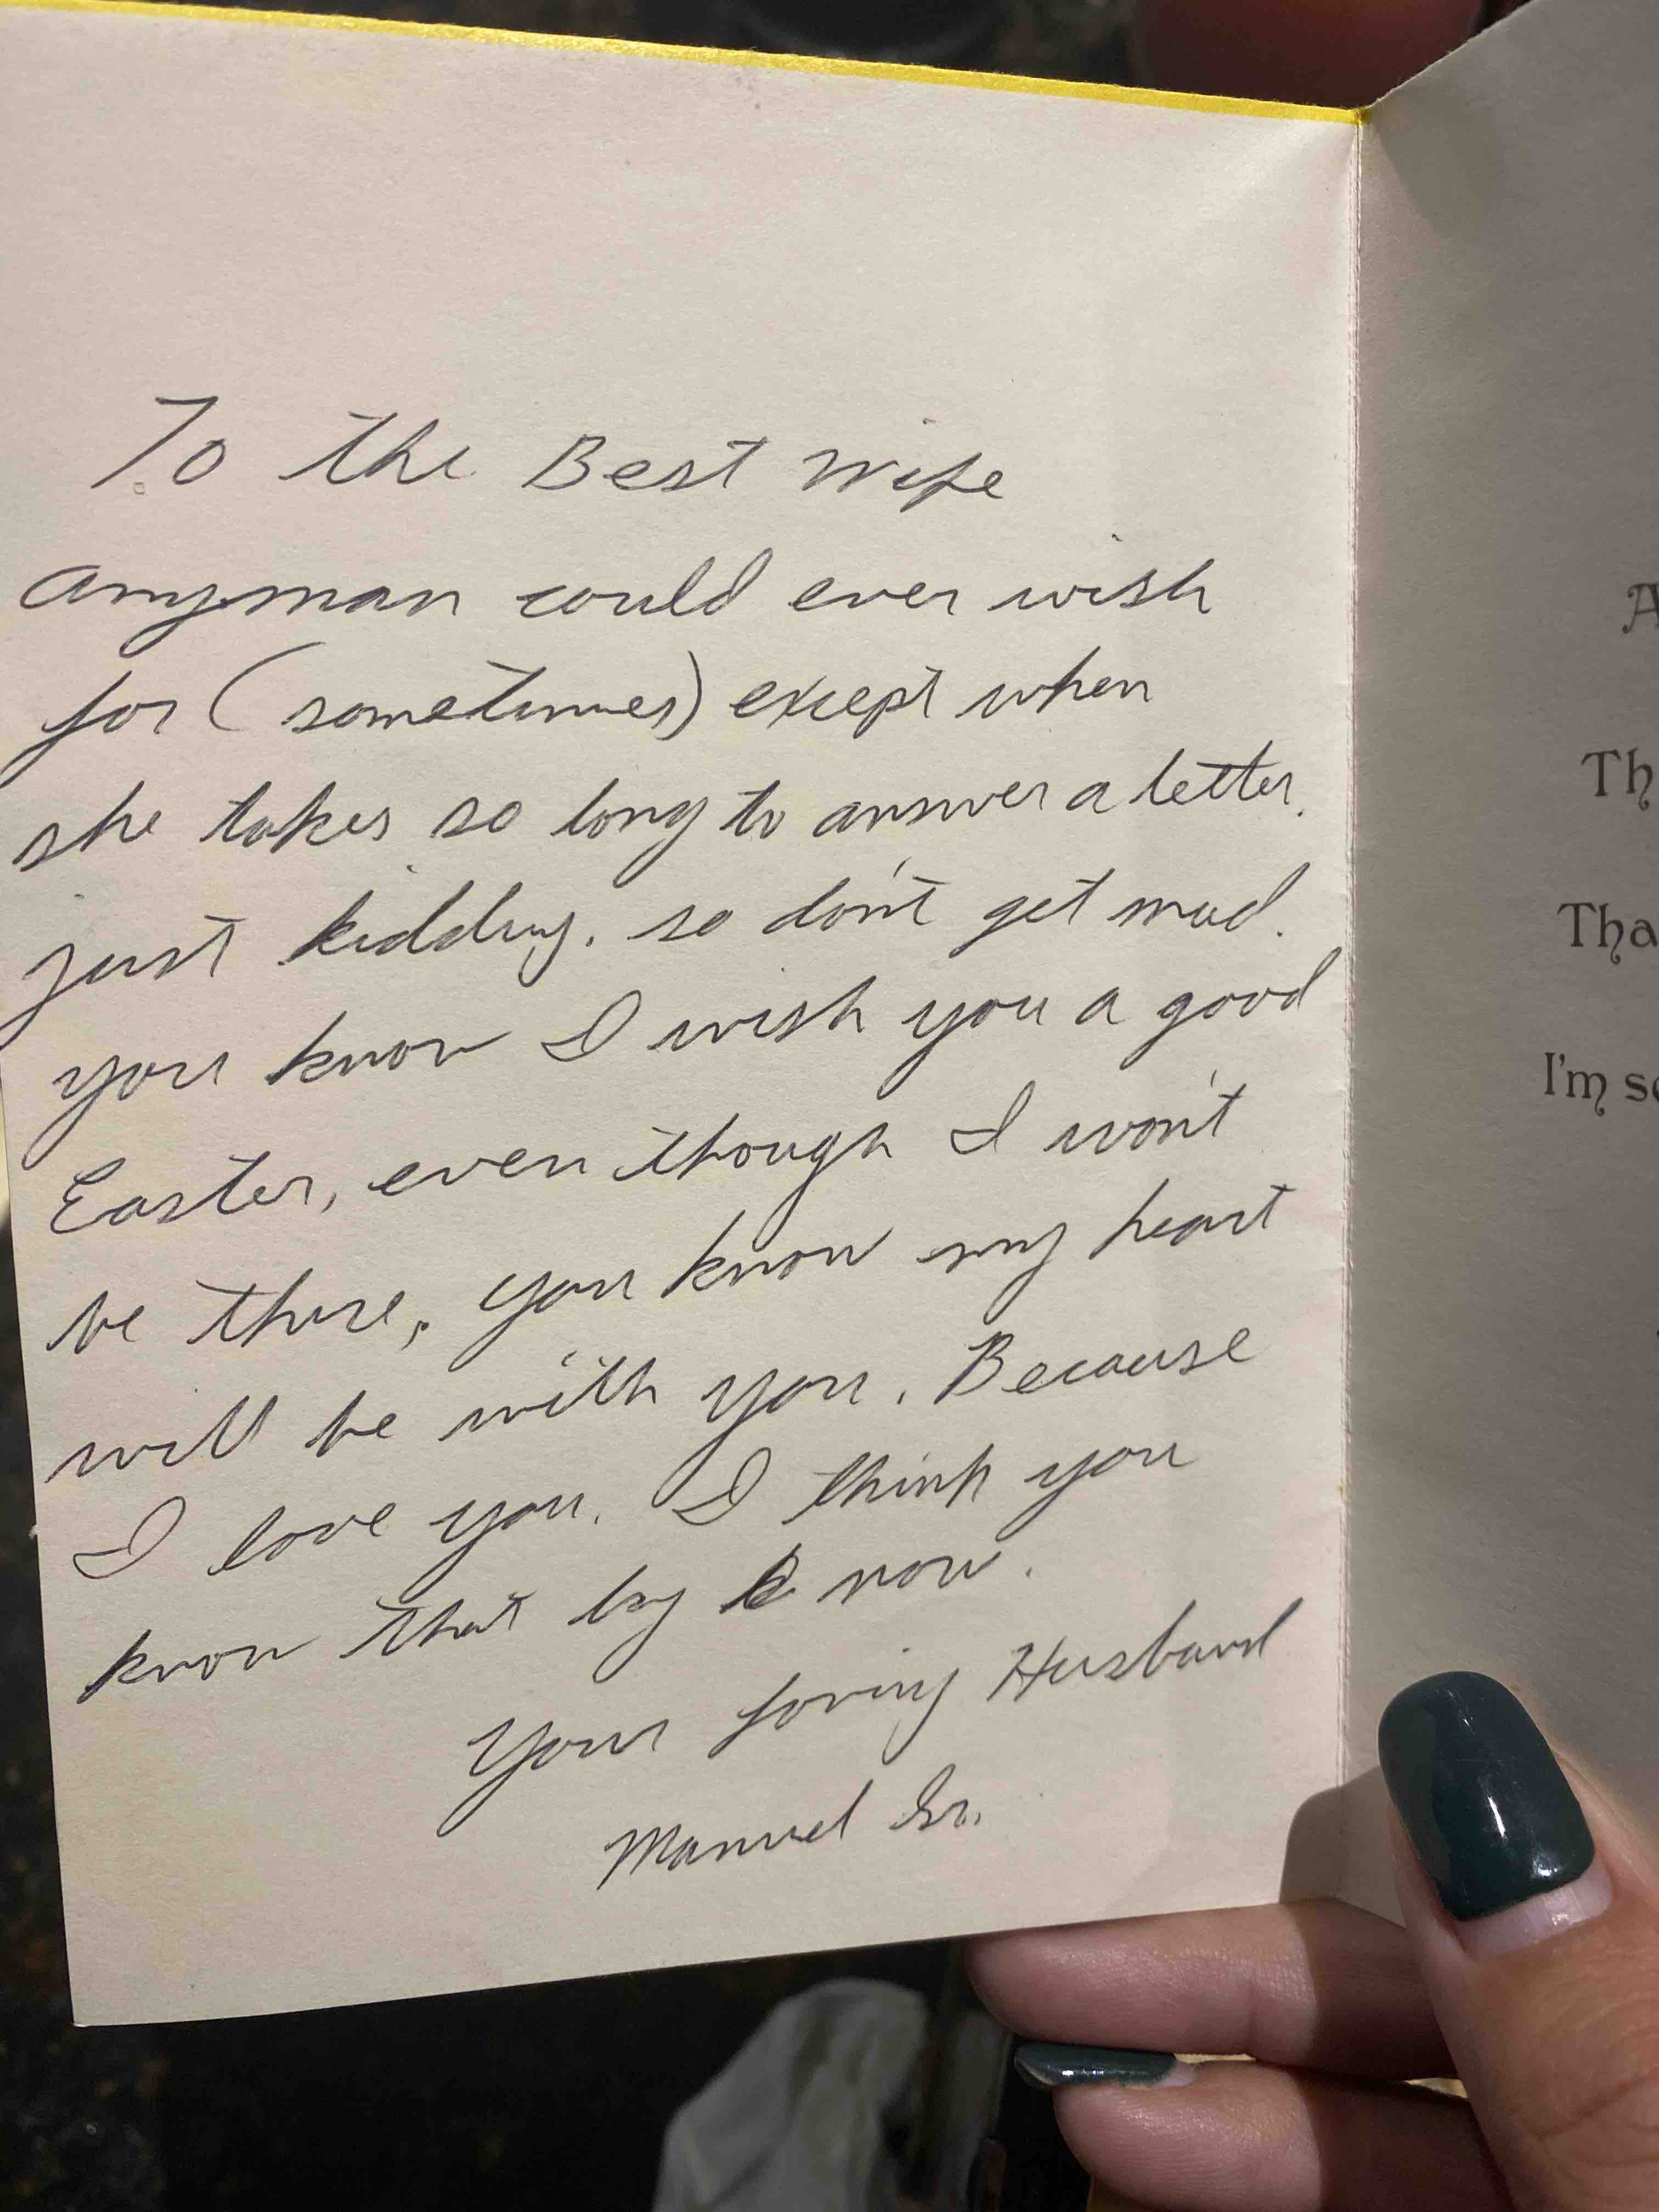 To the Best Wife
anyman could ever wish
for (sometimes) except when
she takes so long to answer a letter.
just kidding. so don't get mad.
you know I wish you a good
Easter, even though I won't
be there, you know my heart
will be with you. Because
I love you. I think you
know that by now.
Your loving Husband
Manuel Sr.
A
Th
Tha
I'm so